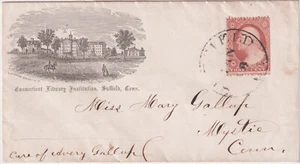 Connecticut Literary Institution, Suffield, Conn.
Miss Mary Gallup
Mystic
Conn.
Care of Gallup